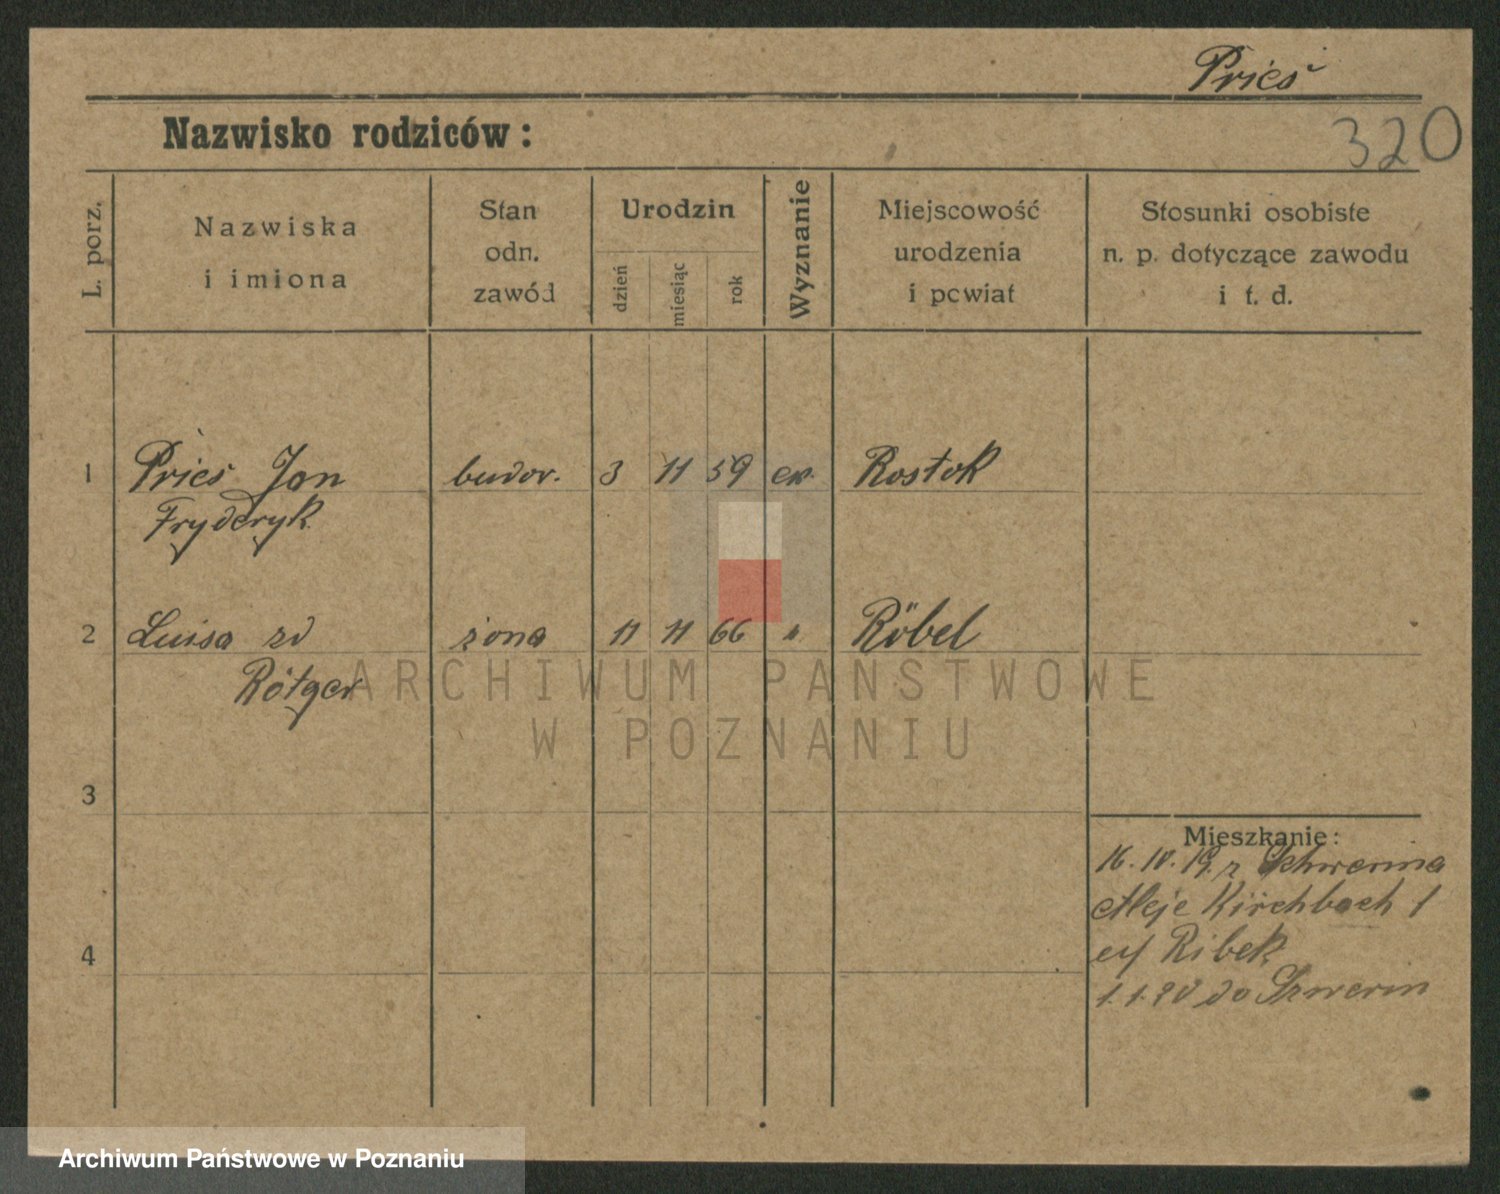 Pries
320
Nazwisko rodziców:
L. porz.
Nazwiska
i imiona
Stan
odn.
zawód
Urodzin
dzień
miesiąc
rok
Wyznanie
Miejscowość
urodzenia
i powiat
Stosunki osobiste
n. p. dotyczące zawodu
i t. d.
1 Pries Jan budow. 3 11 59 ew. Rostok
Fryderyk
2 Luisa zd żona 11 11 66 " Röbel
Rötger
ARCHIWUM PAŃSTWOWE
W POZNANIU
3
Mieszkanie:
16. IV. 19. z Schwerina
Aleje Kirchbach 1
4
Ribek
1.1.20 do Szwerin
Archiwum Państwowe w Poznaniu